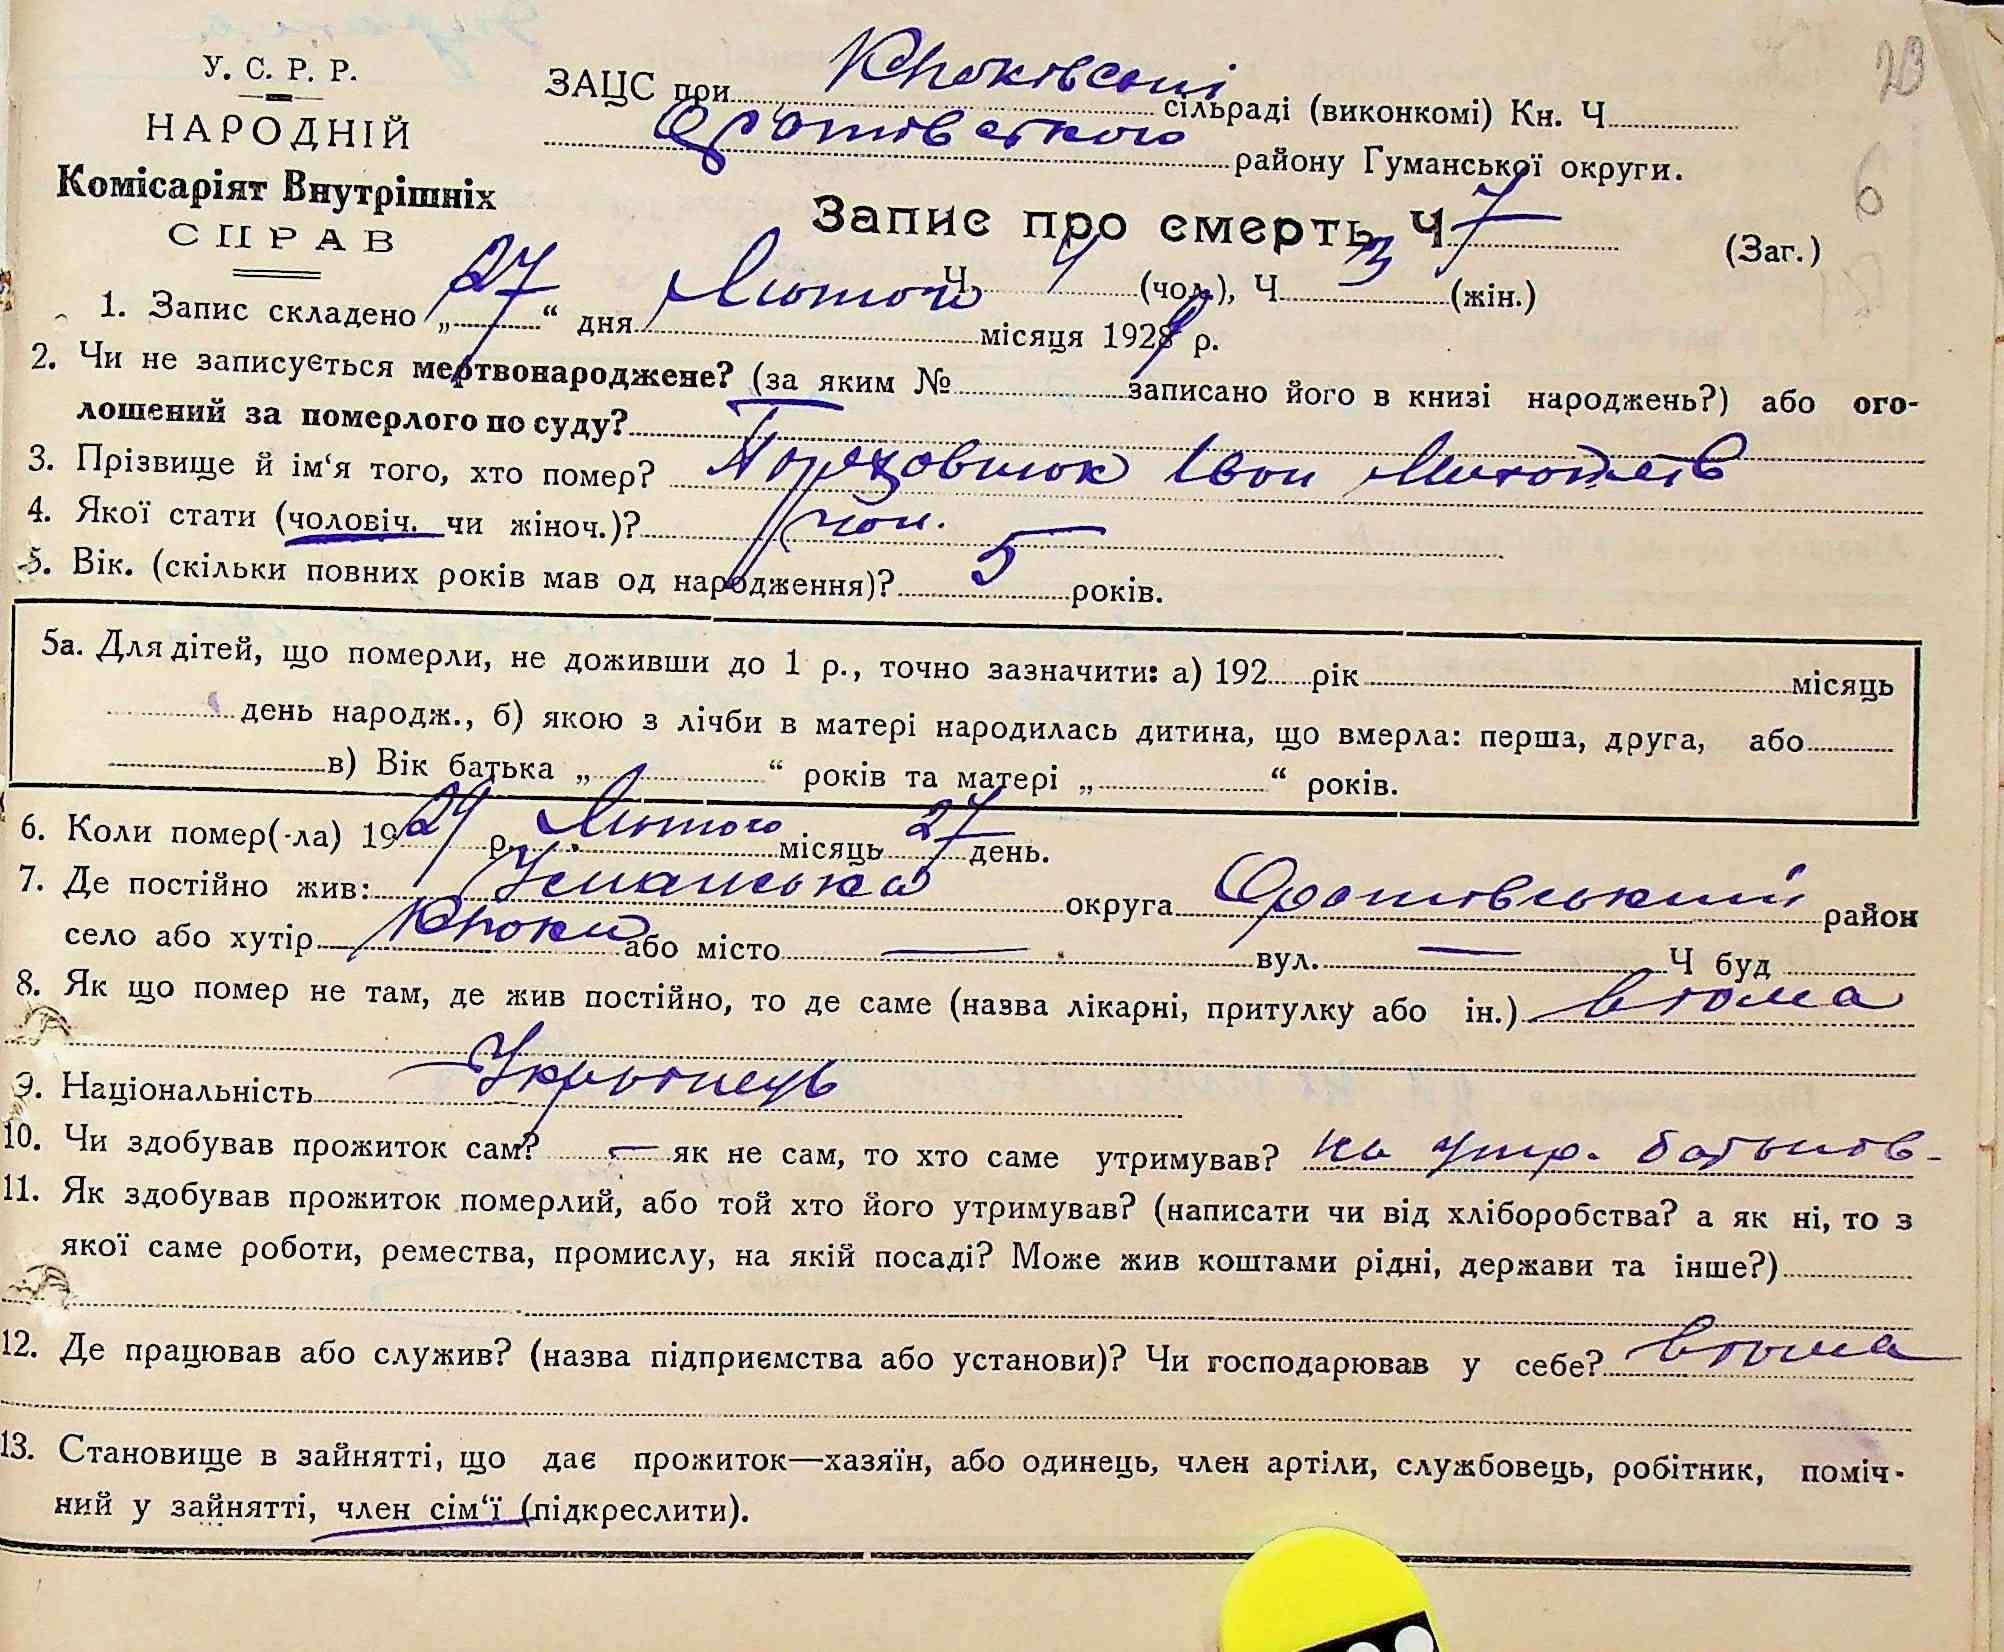 23
У. С. Р. Р.
НАРОДНІЙ
Комісаріят Внутрішніх
СПРАВ
ЗАЦС при сільраді (виконкомі) Кн. Ч
Оратовського району Гуманської округи.
6
Запис про смерть Ч 7 (Заг.)
Ч 4 (чол.), Ч 3 (жін.)
1. Запис складено „27“ дня Лютого місяця 1929 р.
2. Чи не записується мертвонароджене? (за яким № записано його в книзі народжень?) або ого-
лошений за померлого по суду?
3. Прізвище й ім‘я того, хто помер? Іван
4. Якої стати (чоловіч. чи жіноч.)? чол.
5. Вік. (скільки повних років мав од народження)? 5 років.
5а. Для дітей, що померли, не доживши до 1 р., точно зазначити: а) 192 рік місяць
день народж., б) якою з лічби в матері народилась дитина, що вмерла: перша, друга, або
в) Вік батька „ “ років та матері „ “ років.
6. Коли помер(-ла) 1929 р. Лютого місяць 27 день.
7. Де постійно жив: Уманська округа Оратовський район
село або хутір або місто — вул. — Ч буд
8. Як що помер не там, де жив постійно, то де саме (назва лікарні, притулку або ін.) вдома
9. Національність Українець
10. Чи здобував прожиток сам? — як не сам, то хто саме утримував? на утр. батьків
11. Як здобував прожиток померлий, або той хто його утримував? (написати чи від хліборобства? а як ні, то з
якої саме роботи, ремества, промислу, на якій посаді? Може жив коштами рідні, держави та інше?)
12. Де працював або служив? (назва підприємства або установи)? Чи господарював у себе? вдома
13. Становище в зайнятті, що дає прожиток—хазяїн, або одинець, член артіли, службовець, робітник, поміч-
ний у зайнятті, член сім‘ї (підкреслити).